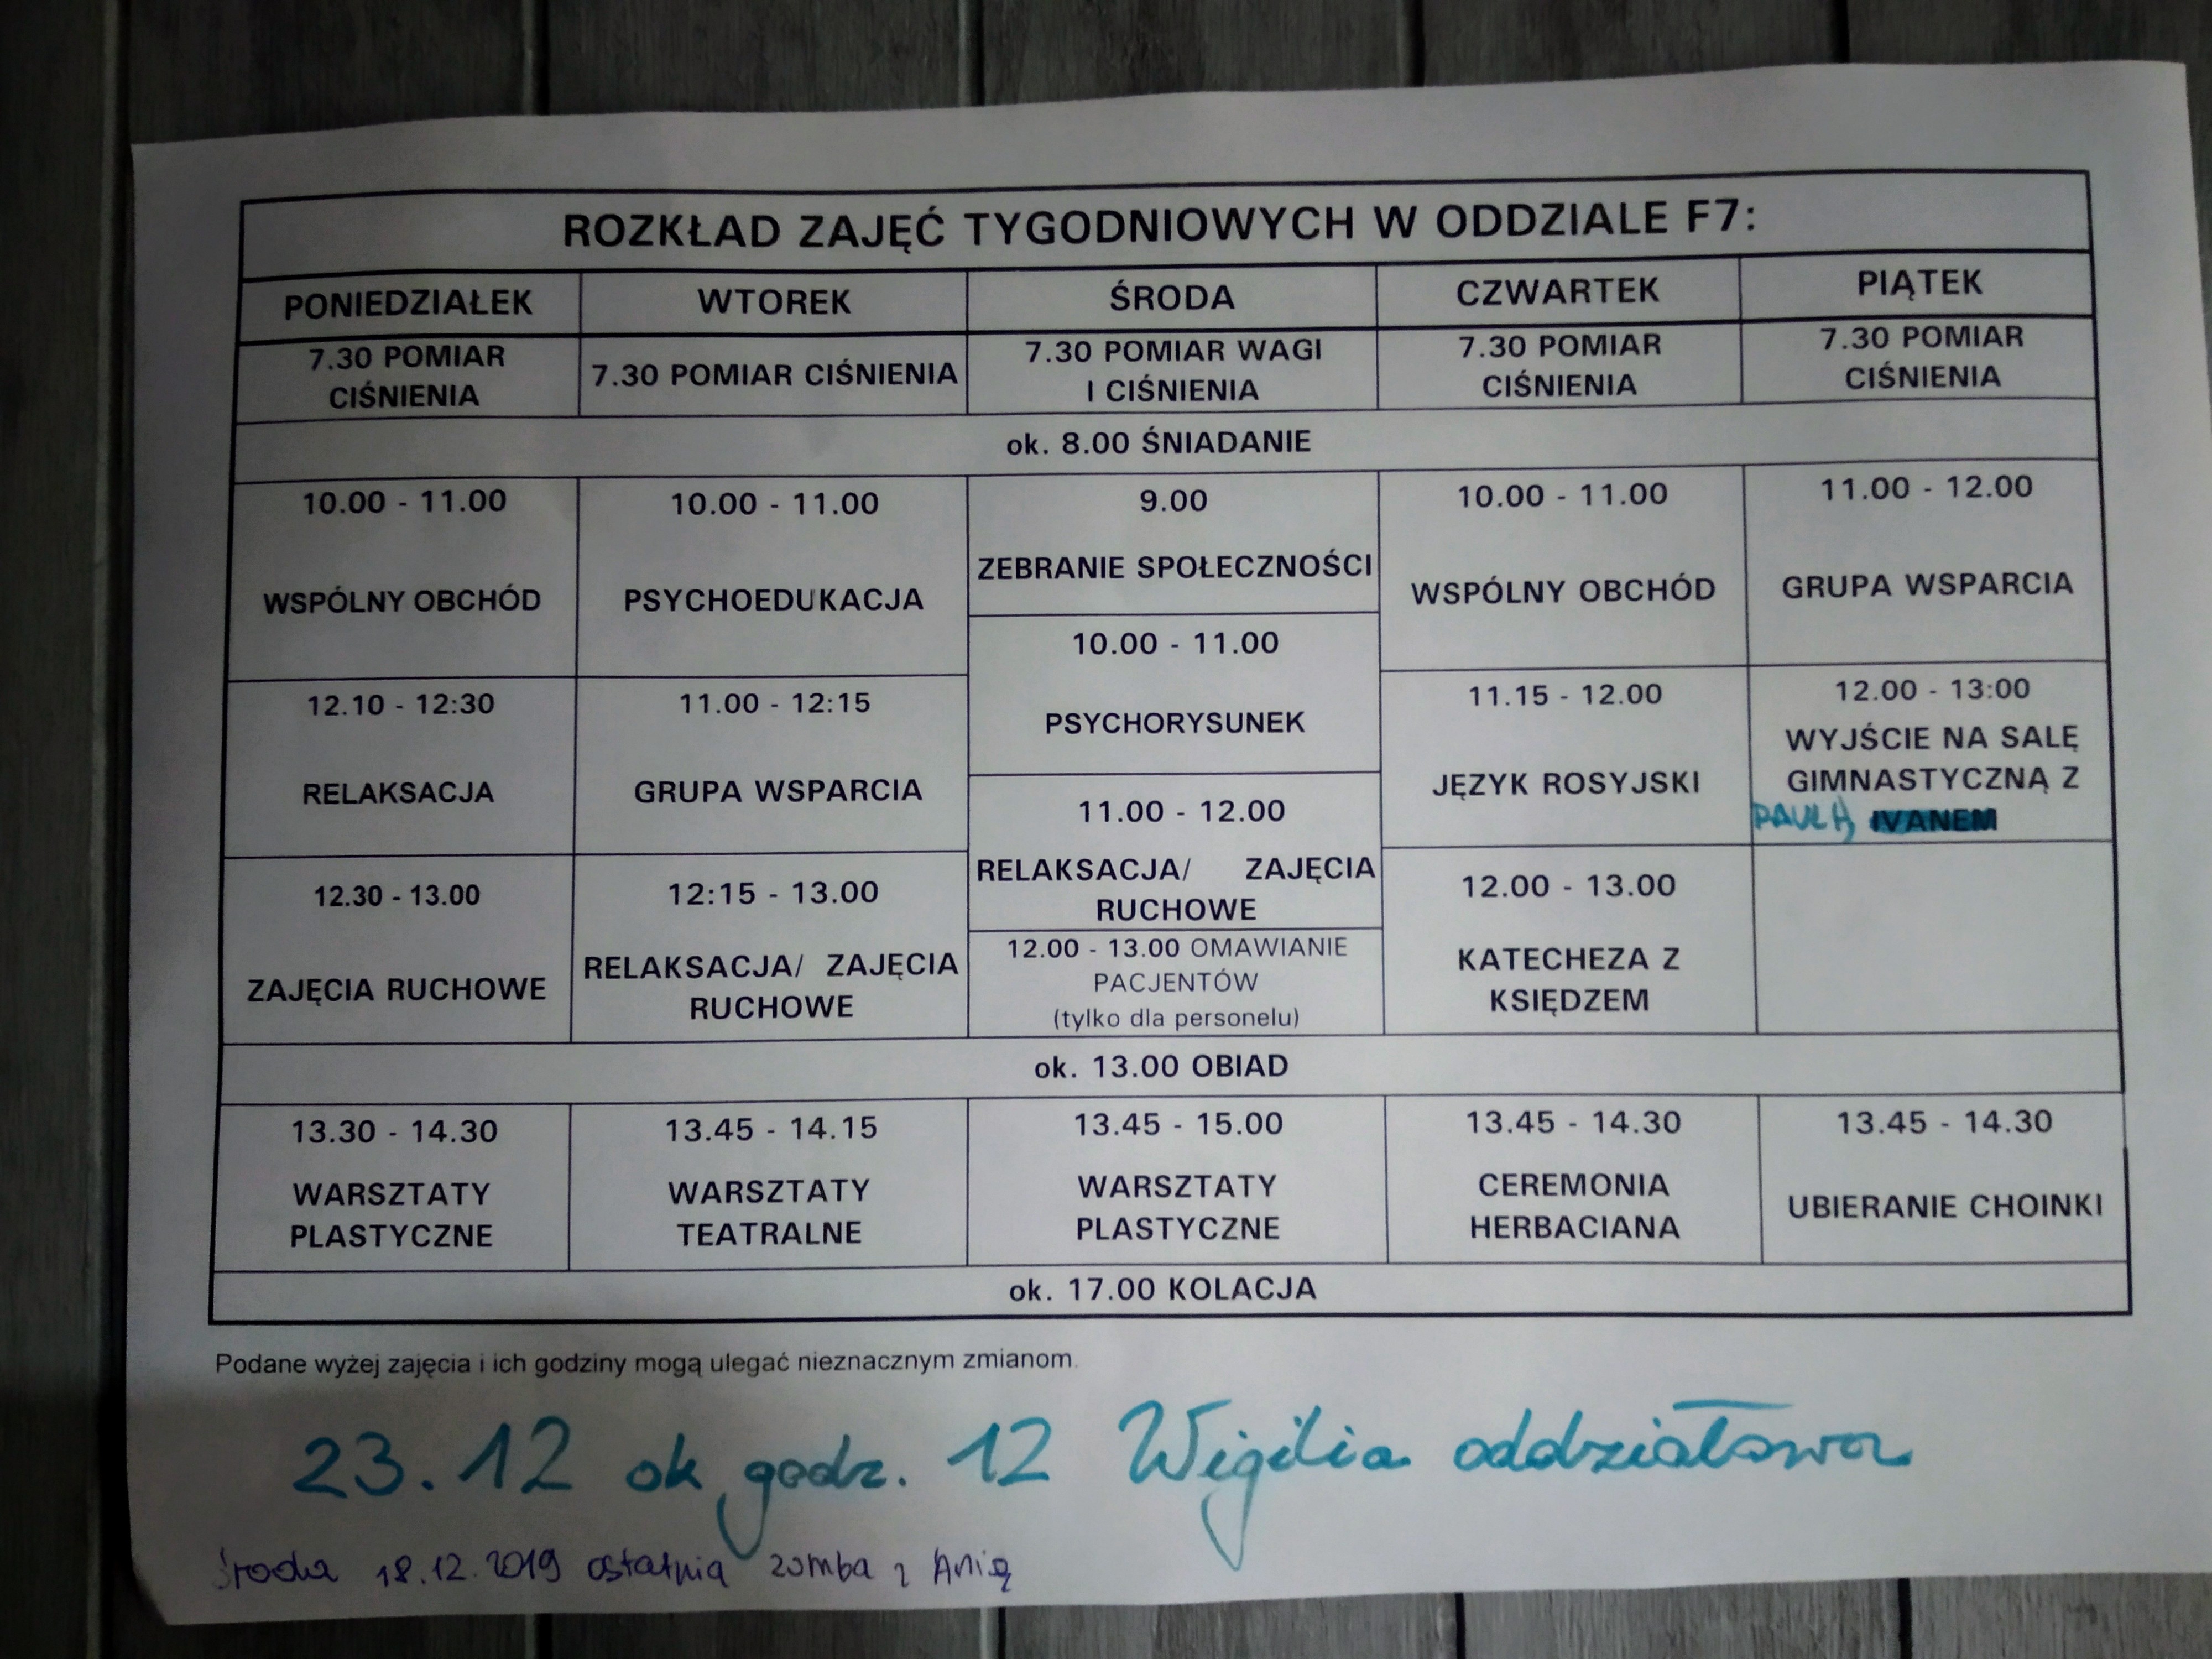 ROZKŁAD ZAJĘĆ TYGODNIOWYCH W ODDZIALE F7:
PONIEDZIAŁEK WTOREK ŚRODA CZWARTEK PIĄTEK
7.30 POMIAR
CIŚNIENIA
7.30 POMIAR CIŚNIENIA
7.30 POMIAR WAGI
I CIŚNIENIA
7.30 POMIAR
CIŚNIENIA
7.30 POMIAR
CIŚNIENIA
ok. 8.00 ŚNIADANIE
10.00 - 11.00
WSPÓLNY OBCHÓD
12.10 - 12:30
RELAKSACJA
12.30 - 13.00
ZAJĘCIA RUCHOWE
10.00 - 11.00
PSYCHOEDUKACJA
11.00 - 12:15
GRUPA WSPARCIA
12:15 - 13.00
RELAKSACJA/ ZAJĘCIA
RUCHOWE
9.00
ZEBRANIE SPOŁECZNOŚCI
10.00 - 11.00
PSYCHORYSUNEK
11.00 - 12.00
RELAKSACJA/ ZAJĘCIA
RUCHOWE
12.00 - 13.00 OMAWIANIE
PACJENTÓW
(tylko dla personelu)
10.00 - 11.00
WSPÓLNY OBCHÓD
11.15 - 12.00
JĘZYK ROSYJSKI
12.00 - 13.00
KATECHEZA Z
KSIĘDZEM
11.00 - 12.00
GRUPA WSPARCIA
12.00 - 13:00
WYJŚCIE NA SALĘ
GIMNASTYCZNĄ Z
IVANEM
ok. 13.00 OBIAD
13.30 - 14.30
WARSZTATY
PLASTYCZNE
13.45 - 14.15
WARSZTATY
TEATRALNE
13.45 - 15.00
WARSZTATY
PLASTYCZNE
13.45 - 14.30
CEREMONIA
HERBACIANA
13.45 - 14.30
UBIERANIE CHOINKI
ok. 17.00 KOLACJA
Podane wyżej zajęcia i ich godziny mogą ulegać nieznacznym zmianom.
23.12 ok godz. 12 Wigilia oddziałowa
Środa 18.12.2019 ostatnia zumba z Anią